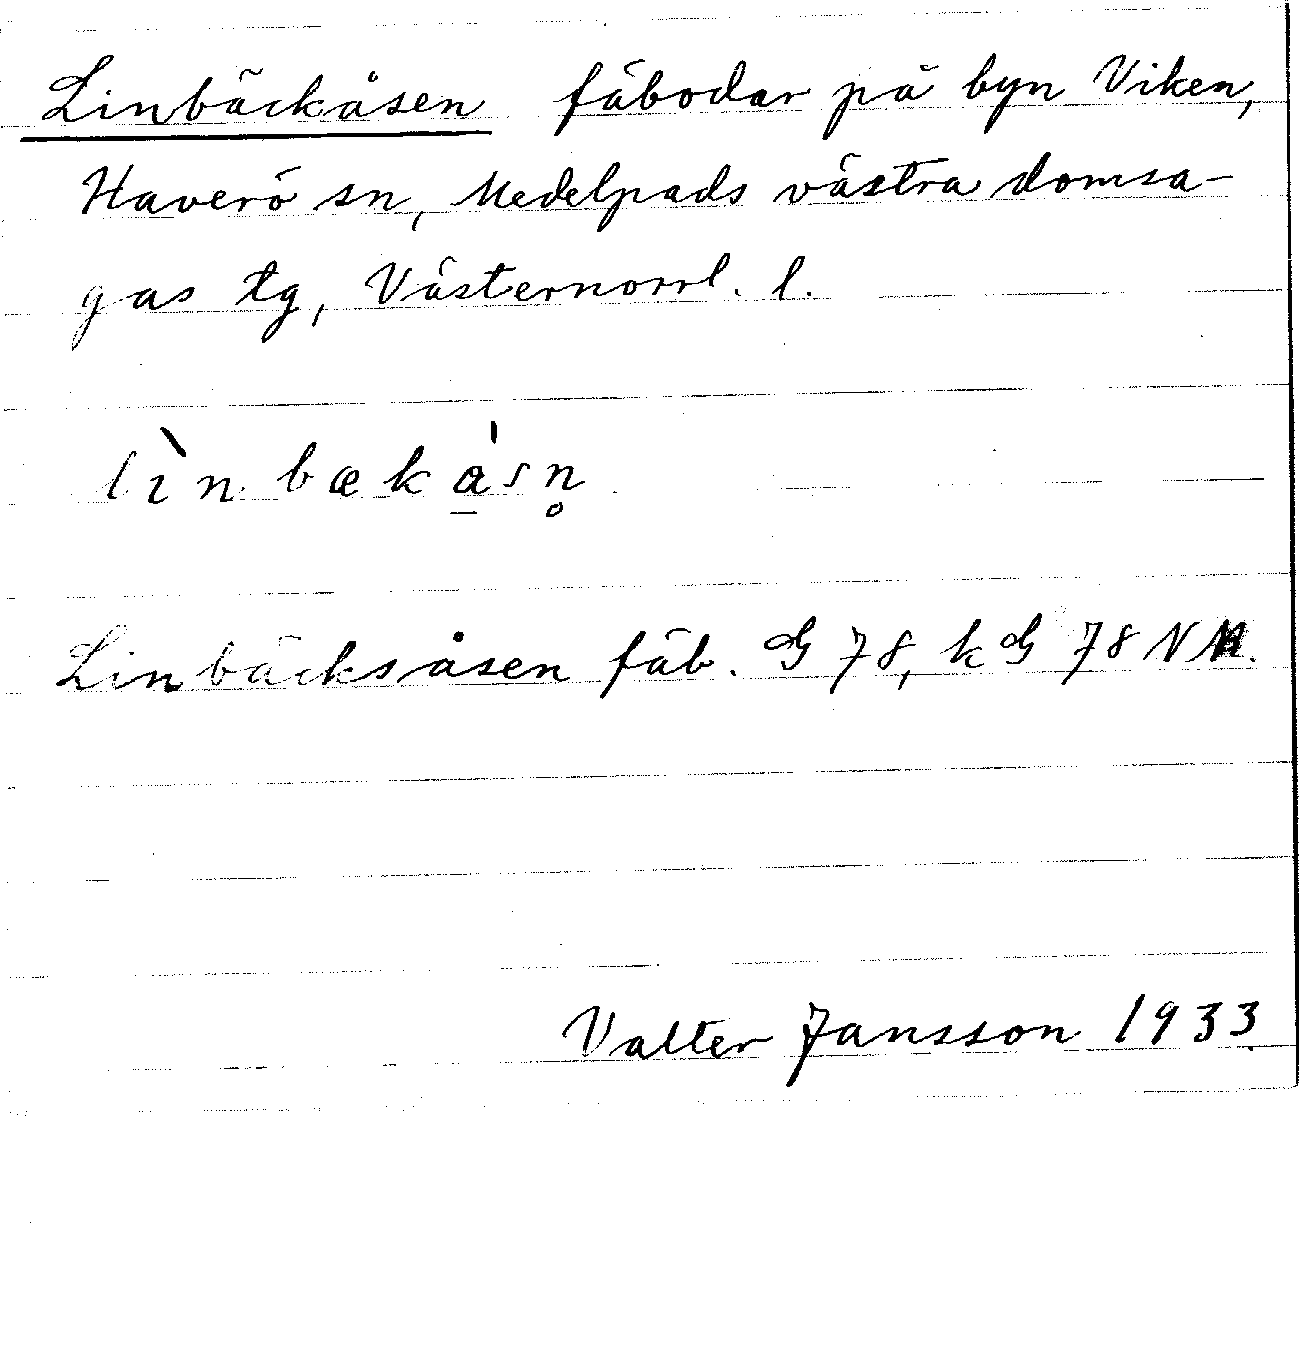 Linbäckåsen fäbodar på byn Viken,
Haverö sn, Medelpads västra domsa-
gas tg, Västernorrl. l.
lìnbækåsn̥
Linbäcksåsen fäb. G 78, k G 78 NV
Valter Jansson 1933.